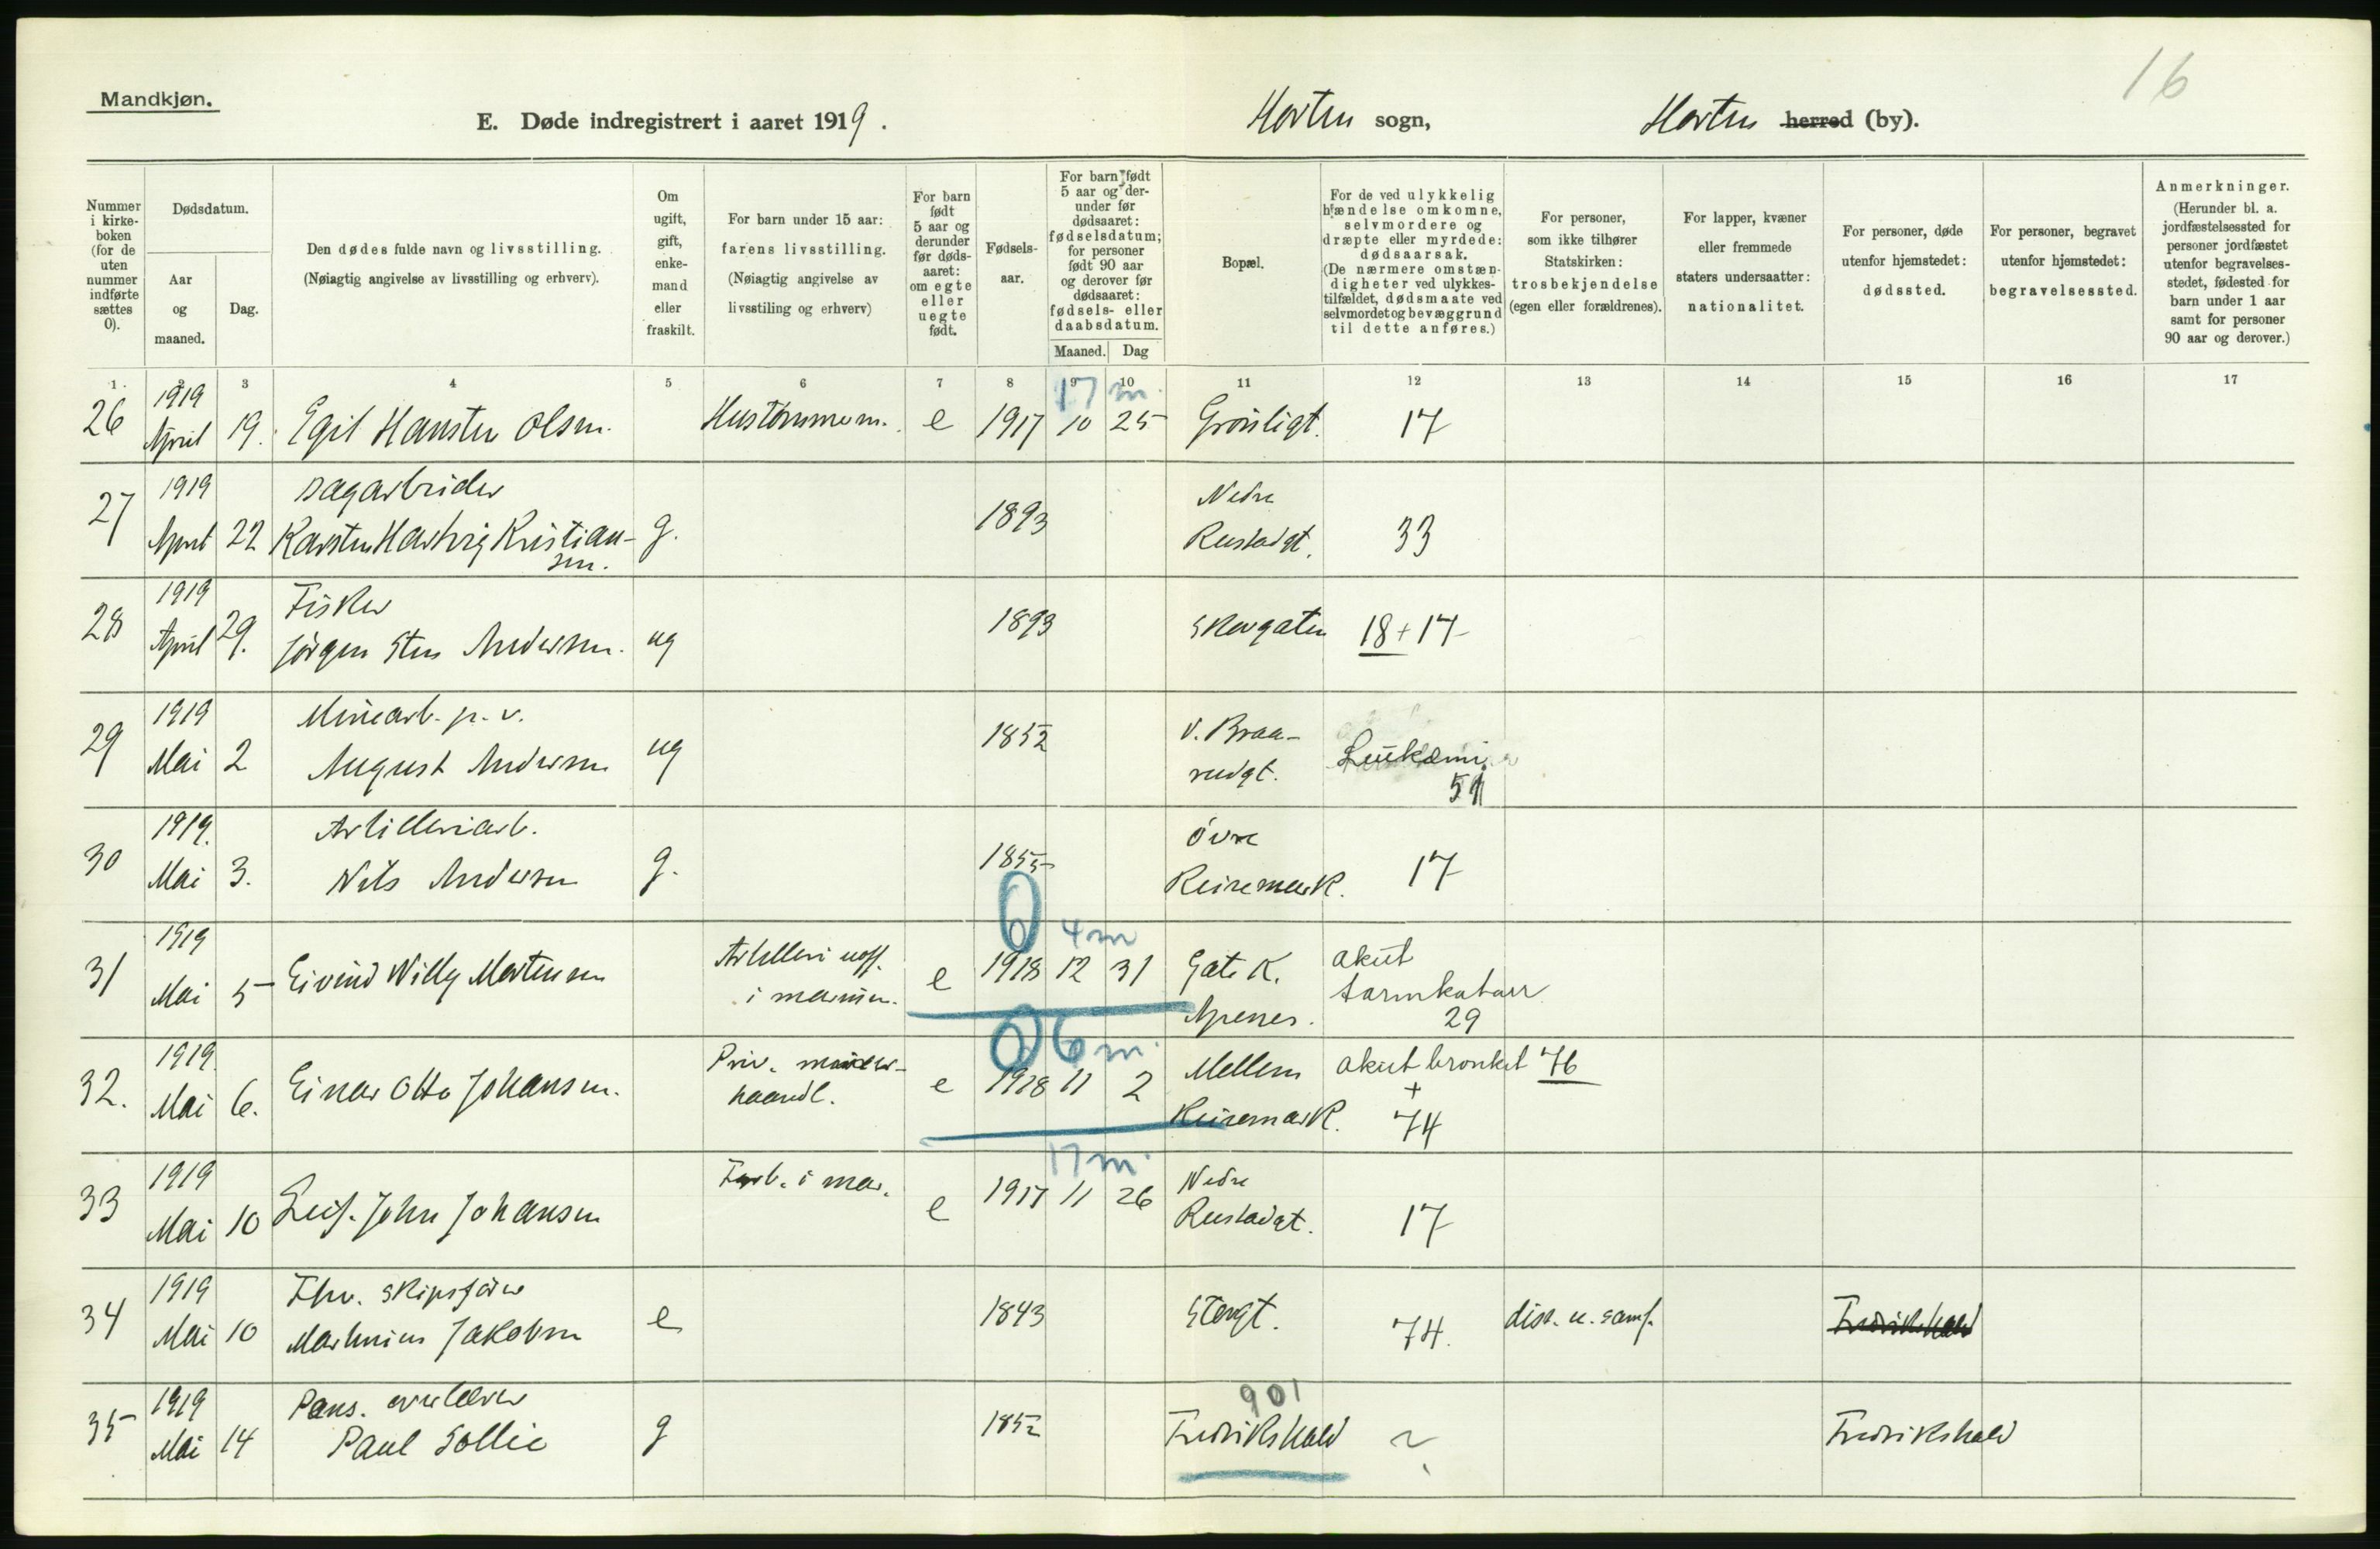 16
Mandkjøn.
E. Døde indregistrert i aaret 1919.
Horten sogn,
Horten herred (by).
Nummer i kirke-boken (for de uten nummer indførte sættes 0).
Dødsdatum.
Aar og maaned.
Dag.
Den dødes fulde navn og livsstilling.
(Nøiagtig angivelse av livsstilling og erhverv).
Om ugift, gift, enke-mand eller fraskilt.
For barn under 15 aar: farens livsstilling.
(Nøiagtig angivelse av livsstiling og erhverv)
For barn født 5 aar og derunder før døds-aaret: om egte eller uegte født.
Fødsels-aar.
For barn født 5 aar og der-under før dødsaaret: fødselsdatum; for personer født 90 aar og derover før dødsaaret: fødsels- eller daabsdatum.
Maaned.
Dag
Bopæl.
For de ved ulykkelig hændelse omkomne, selvmordere og dræpte eller myrdede: dødsaarsak.
(De nærmere omstæn-digheter ved ulykkes-tilfældet, dødsmaate ved selvmordet og bevæggrund til dette anføres.)
For personer, som ikke tilhører Statskirken: trosbekjendelse (egen eller forældrenes).
For lapper, kvæner eller fremmede staters undersaatter: nationalitet.
For personer, døde utenfor hjemstedet: dødssted.
For personer, begravet utenfor hjemstedet: begravelsessted.
Anmerkninger.
(Herunder bl. a. jordfæstelsessted for personer jordfæstet utenfor begravelses-stedet, fødested for barn under 1 aar samt for personer 90 aar og derover.)
1. 2 3 4 5 6 7 8 9 10 11 12 13 14 15 16 17
17 m.
26 1919 April 19. Egil Hansten Olsen. Hustømmerm. e 1917 10 25 Grønligt. 17
27 1919 April 22 Dagarbeider
Karsten Hartvig Kristian-
sen. g. 1893 Nedre
Rustadgt. 33
28 1919 April 29. Fisker
Jørgen Sten Andersen. ug 1893 Skovgaten 18 + 17
29 1919 Mai 2 Minearb. p. v.
August Andersen ug 1852 V. Braa-
rudgt. Leukæmi
51
30 1919. Mai 3. Artilleriarb.
Nils Andersen g. 1855 Øvre
Keisemark. 17
0 4 m
31 1919 Mai 5 Eivind Willy Martensen Artilleri uoff.
i marinen. e 1918 12 31 Gate K.
Apenes. akut
tarmkatarr
29
0 6 m.
32. 1919. Mai 6. Einar Otto Johansen. Priv.
haandl. e 1918 11 2 Mellem
Keisemark. akut bronkit 76
+
74
17 m.
33 1919 Mai 10 Leif John Johansen i mar. e 1917 11 26 Nedre
Rustadgt. 17
34 1919 Mai 10 Fhv. skipsfører
Martinius Jakobsen e 1843 Storgt. 74. diss. u. samf. Fredrikshald
901
35 1919 Mai 14 Pens.
Paul Sollie g 1852 Fredrikshald ? Fredrikshald